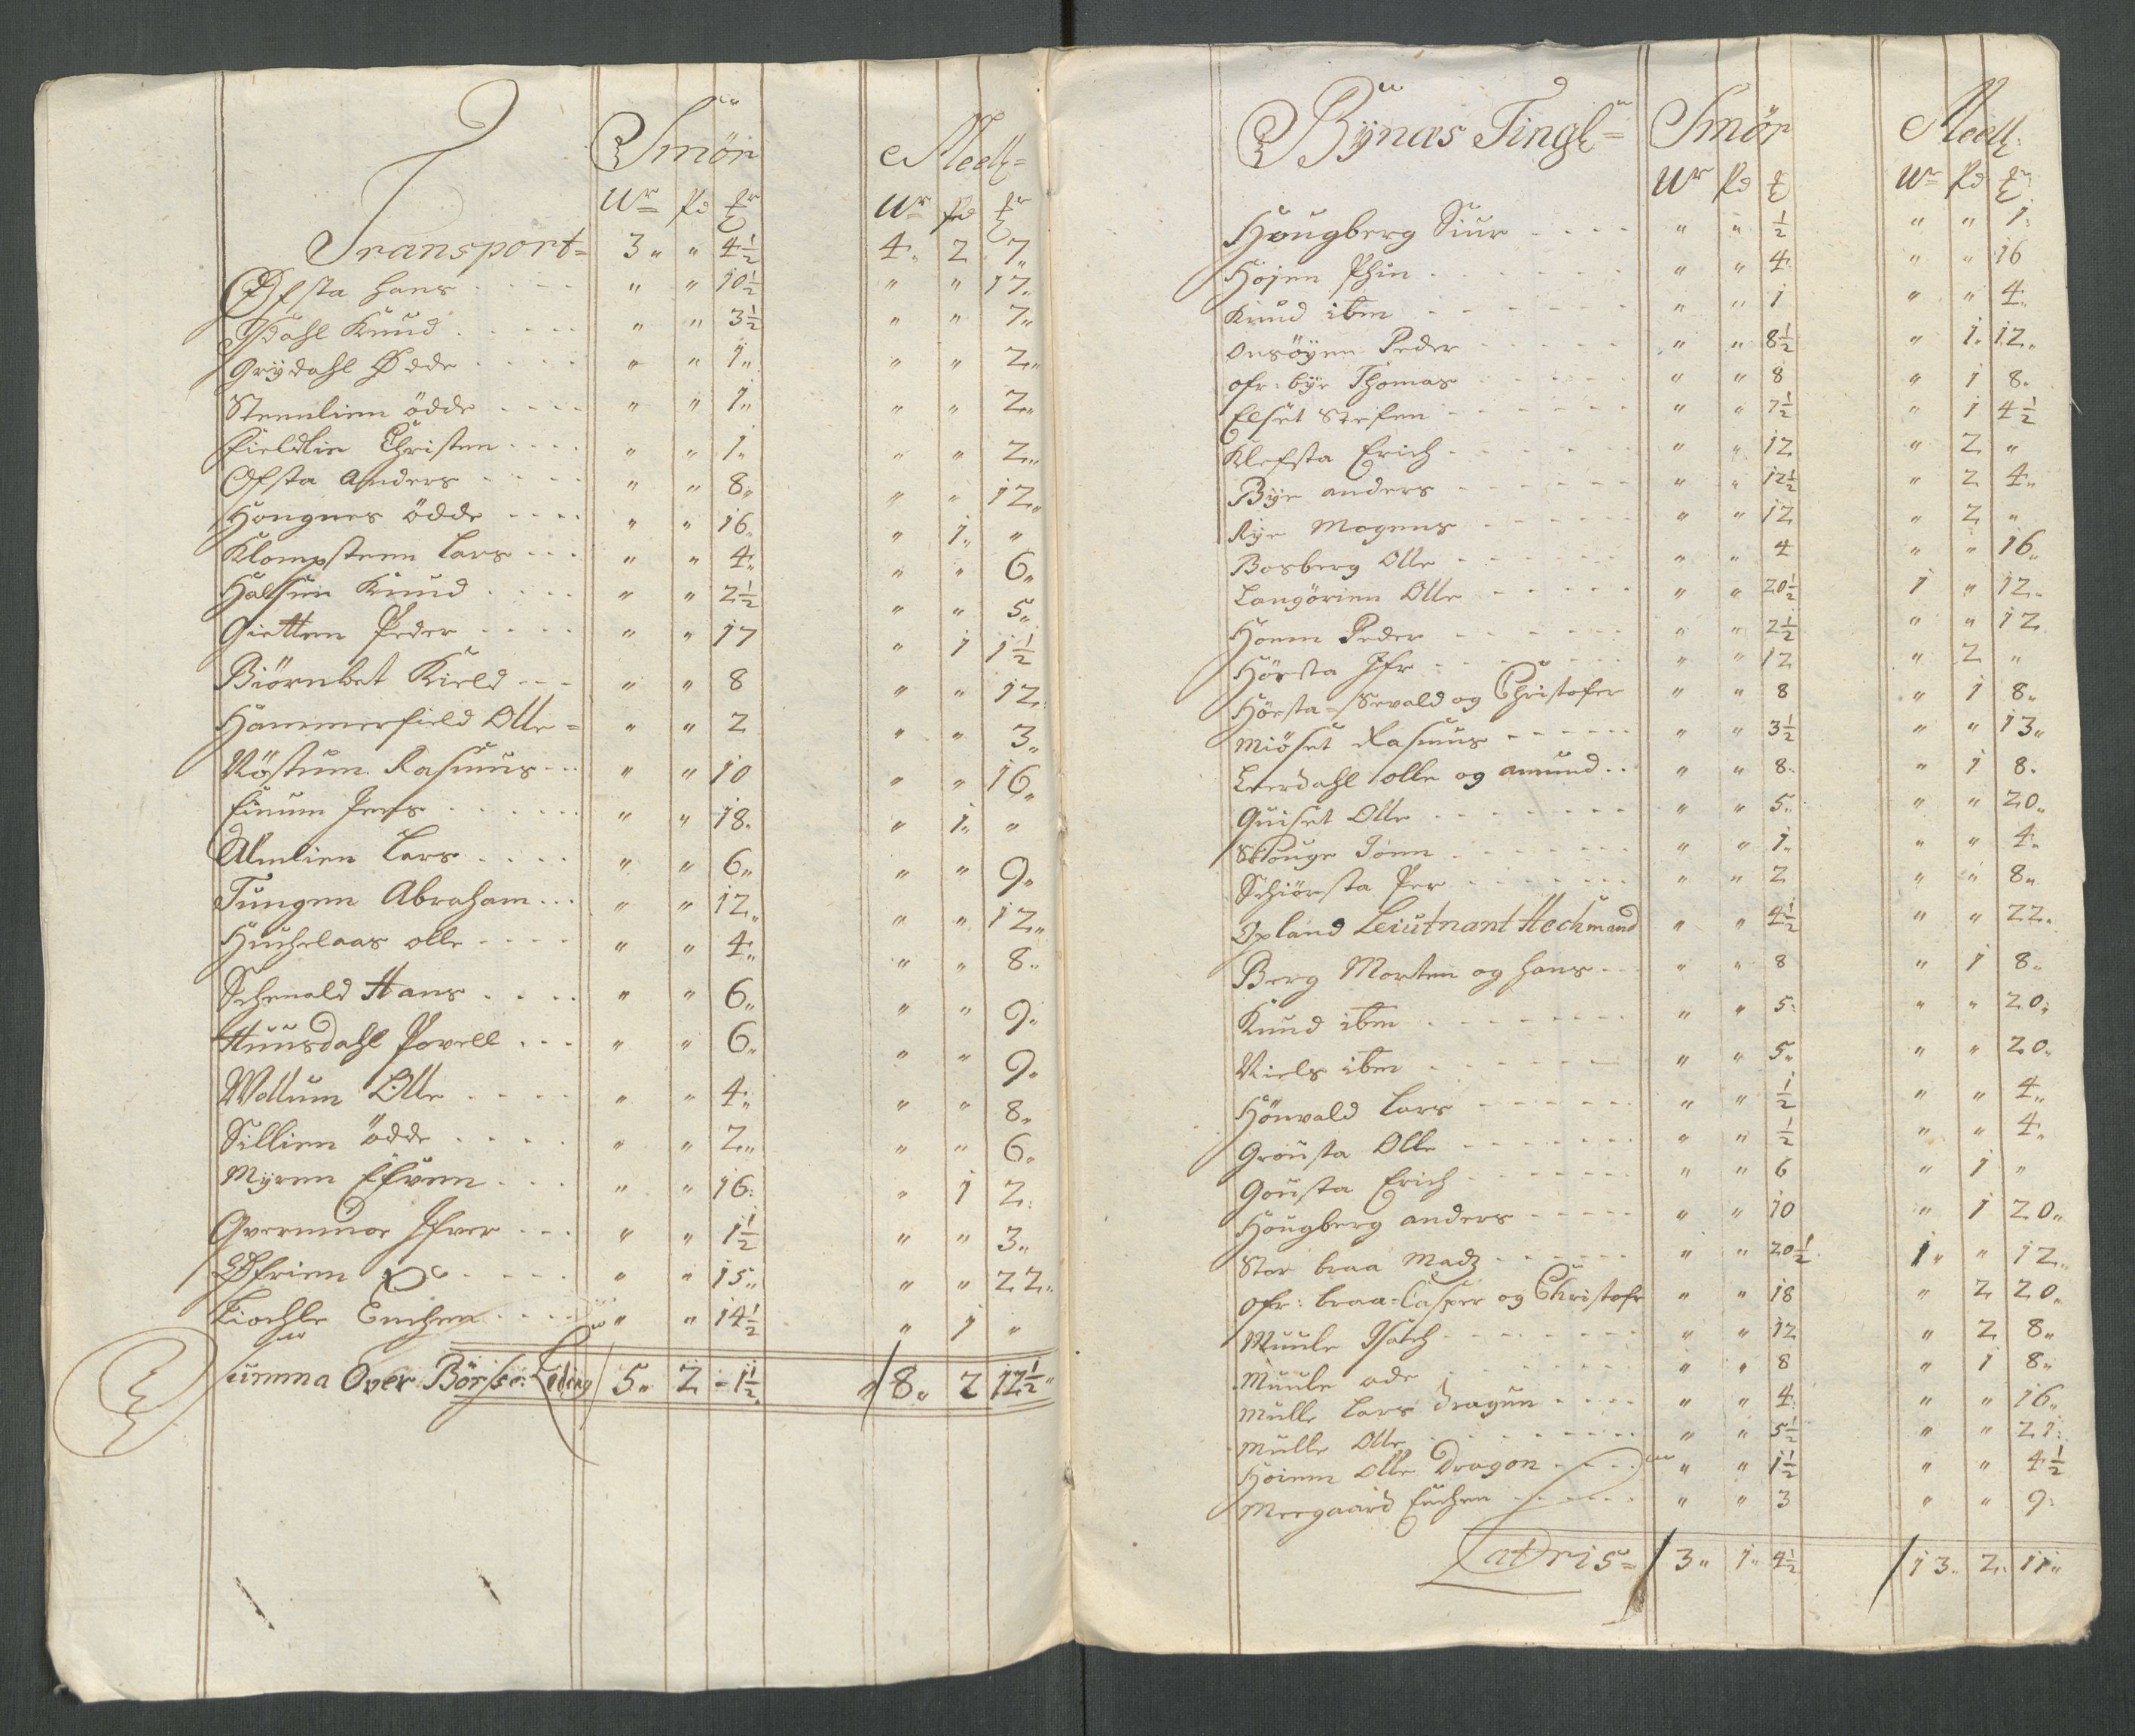 Smör Meelʒ
Wr Pd ℔r Wr Pd ℔r
Transport= 3„ „ 4½ 4„ 2 7„
Ofsta Hans „ „ 10½ „ „ 17„
Ysdahl Knud „ „ 3½ „ „ 7„
Grydahl Odde „ „ 1„ „ „ 2„
Steenlien ödde „ „ 1„ „ „ 2„
Fieldlie Christen „ „ 1„ „ „ 2„
Ofsta Anders „ „ 8„ „ „ 12„
Hongnes ödde „ „ 16„ „ 1„ „
Klompsteen Lars „ „ 4„ „ „ 6„
Halsien Knud „ „ 2½ „ „ 5„
Gietten Peder „ „ 17 „ 1 1½
Biörnbet Kield „ „ 8 „ „ 12„
Hammerfield Olle „ „ 2 „ „ 3„
Röstum Rasmus „ „ 10 „ „ 16„
Einum Jens „ „ 18„ „ 1„ „
Almlien Lars „ „ 6„ „ „ 9„
Tungen Abraham „ „ 12„ „ „ 12„
Huchelaas olle „ „ 4„ „ „ 8„
Schenald Hans „ „ 6„ „ „ 9„
Huusdahl Povell „ „ 6„ „ „ 9„
Wollum Olle „ „ 4„ „ „ 8„
Sillien ödde „ „ 2„ „ „ 6„
Myren Efven „ „ 16„ „ 1 2„
Qvernmoe Ifver „ „ 1½ „ „ 3„
Øfrien „ „ 15„ „ „ 22„
Kiochle Enchen „ „ 14½ „ 1 „
Summa Over Börse 5„ 2 1½ 8„ 2 12½
Bÿnæs Tingl= Smör Meelʒ
Wr Pd ℔ Wr Pd ℔
Hougberg Siur „ „ ½ „ „ 1„
Höjen Phin „ „ 4„ „ „ 16
Knud ibm „ „ 1 „ „ 4„
Onsöyen Peder „ „ 8½ „ 1„ 12„
ofr: bye Thomas „ „ 8 „ 1 8„
Elset Stefen „ „ 7½ „ 1 4½
Klefsta Erich „ „ 12 „ 2 „
Bye anders „ „ 12½ „ 2 4„
Rye Mogens „ „ 12 „ 2 „
Bosberg Olle „ „ 4 „ „ 16„
Langörien Olle „ „ 20½ 1 „ 12„
Hoem Peder „ „ 2½ „ „ 12
Hörsta Ifr „ „ 12 „ 2 „
Hörsta= Sevald og Christofer „ „ 8 „ 1 8„
Miöset Rasmus „ „ 3½ „ „ 13„
Leerdahl olle og amund „ „ 8„ „ 1 8„
Quiset Olle „ „ 5„ „ „ 20„
Skouge Joen „ „ 1„ „ „ 4„
Schiörsta Per „ „ 2 „ „ 8„
Opland Leiutnant Hechmand „ „ 4½ „ „ 22„
Berg Morten og Hans „ „ 8 „ 1 8„
Knud ibm „ „ 5„ „ „ 20„
Niels ibm „ „ 5„ „ „ 20„
Hönvald Lars „ „ ½ „ „ 4„
Grousta Olle „ „ ½ „ „ 4„
Gousta Erich „ „ 6 „ 1 „
Hougberg anders „ „ 10 „ 1 20„
Stor braa Madʒ „ „ 20½ 1„ „ 12„
ofr: braa= Casper og Christofr „ „ 18 „ 2 20„
Muule Isach „ „ 12 „ 2 8„
Muule ode „ „ 8 „ 1 8„
Mulle Lars Dragun „ „ 4„ „ „ 16„
Mulle Olle „ „ 5½ „ „ 21„
Hoiem Olle Dragon „ „ 1½ „ „ 4½
Moegaard Enchen „ „ 3 „ „ 9„
Latris= 3„ 1„ 4½ 13„ 2„ 11„